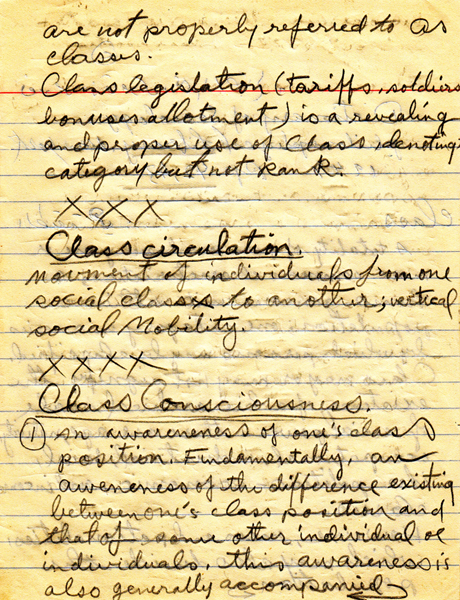 are not properly referred to as
classes.
Class legislation (tariffs, soldiers
bonuses allotment) is a revealing
and proper use of Class, denoting
category but not rank.
XXX
Class circulation.
movment of individuals from one
social classes to another; vertical
social Mobility.
XXXX
Class Consciousness.
① an awareness of one's class
position. Fundamentally, an
aweneness of the difference existing
between one's class position and
that of some other individual or
individuals. this awareness is
also generally accompanied